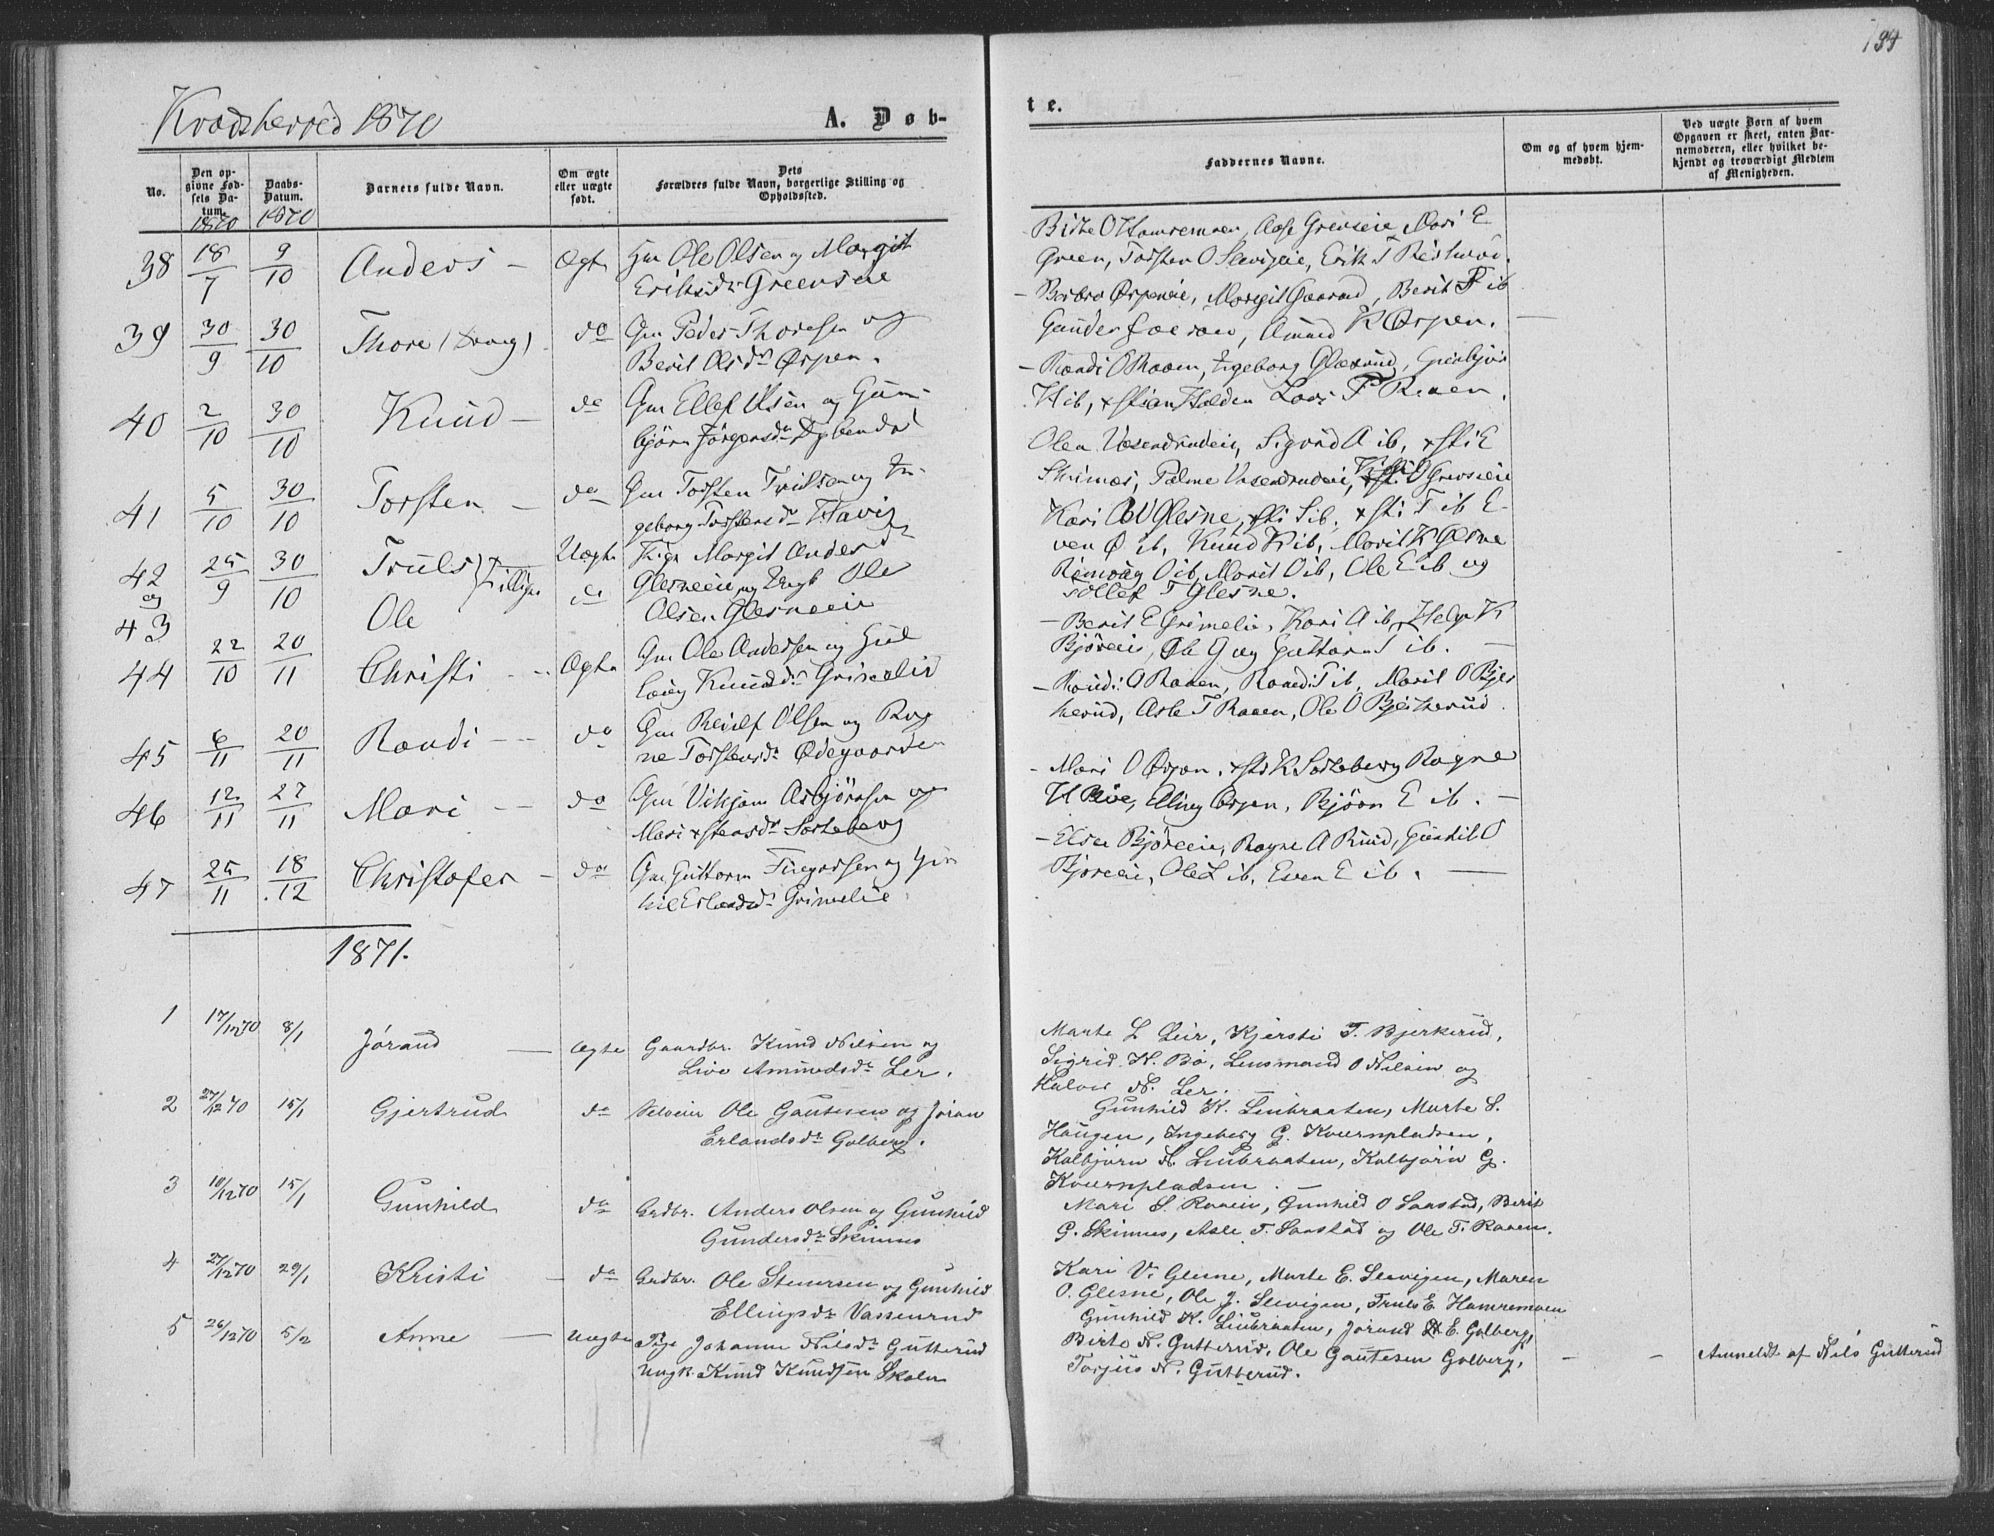 194
Kradsherred 1870
A. Døb-
te.
No.
Den opgivne Fødsels Datum.
1870
Daabs-Datum.
1870
Barnets fulde Navn.
Om ægte eller uægte født.
Dets Forældres fulde Navn, borgerlige Stilling og Opholdssted.
Faddernes Navne.
Om og af hvem hjemmedøbt.
Ved uægte Børn af hvem Opgaven er skeet, enten Barnemoderen, eller hvilket bekjendt og troværdigt Medlem af Menigheden.
38 18/7 9/10 Anders – Ægte Ole Olsen og Margit
Eriksdr Greenseie
Green, Torsten O Slevigeie, Erik T
39 30/9 30/10 Thore (Dreng) do Gm Peder Thoresen og
Berit Olsdr Ørpen.
– Barbro Ørpeneie, Margit Gaarud, Berit ib
Amund K Ørpen.
40 2/10 30/10 Knud – do Gm Ellef Olsen og Gun-
bjør Jørgensdr
– Randi O Raaen, Ingeborg Glesrud,
H ib, Halden T Raaen.
41 5/10 30/10 Torsten – do Gm Torsten Trulsen og In-
geborg Torstensdr
Sigrid A ib, ×sti E
Skinnes,
42 og 43 25/9 30/10 Truls } Tvillinger Uægte Pige Margit Andersdr
Glesneeie og Ungk Ole
Ole do Olsen Glesneeie
Kari O Glesne, ×sti S ib, ×sti T ib, E-
ven Ø ib, Knud K ib, Marit K Glesne
O ib, Marit O ib, Ole E ib og
Tollef T Glesne.
44 22/10 20/11 Christi – Ægte Gm Ole Andersen og Gul
Knudsdr Grimelie
– Berit E Grimelie, Kari A ib, Helge K
Bjøreeie, Ole G og Guttorm S ib. –
45 6/11 20/11 Randi – do Gm Reiulf Olsen og Rag
ne Torstensdr Ødegaarden
– Randi O Raaen, Randi T ib, Marit O Bjer
kerud, Asle T Raaen, Ole O Bjerkerud.
46 12/11 27/11 Mari – do Gm Asbjørnsen og
Mari ×stensdr Sorteberg
– Mari O Ørpen, ×sti K Sorteberg Ragne
H Elling Ørpen, Bjørn E ib. –
47 25/11 18/12 Christofer – do Gm Guttorm og Gun
hil Erlandsdr Grimelie
– Else Bjøreeie, Ragne A Ruud, Gunhil O
Bjøreeie, Ole L ib, Even E ib. –
1871.
1 17/12 70 8/1 Jørand – Ægte Gaardbr. Knud Nilsen og
Live Amundsdr Ler.
Marte L Leir, Kjersti T. Bjerkerud,
Sigrid H. Bø, Lensmand O Nilsen og
Halvor N. Ler. –
2 27/12 70 15/1 Gjertrud do Selveier Ole Gautesen og Jøran
Erlandsdr Golberg.
Gunhild K. Liubraaten, Marte S.
Haugen, Ingeborg G. Kvernpladsen,
Kolbjørn N. Liubraaten, Kolbjørn G.
Kvernpladsen. –
3 10/12 70 15/1 Gunhild do Grdbr. Anders Olsen og Gunhild
Gundersdr Skinnes
Mari S. Raaen, Gunhild O Saastad, Berit
G. Skinnes, Asle T. Saastad og Ole T. Raaen.
4 27/12 70 29/1 Kristi – do Grdbr. Ole Stenersen og Gunhild
Ellingsdr Vassenrud
Kari V. Glesne, Marte E. Slevigen, Maren
O. Glesne, Ole J. Slevigen, Truls E. Hamremoen
5 26/12 70 5/2 Anne – Uægte Pige Johanne Nilsdr Gutterud
Ungk. Knud Knudsen Skalen
Gunhild K. Liubraaten, Jørand E. Golberg,
Birte N. Gutterud, Ole Gautesen Golberg,
Torjus N. Gutterud.
– – Anmeldt af Nils Gutterud